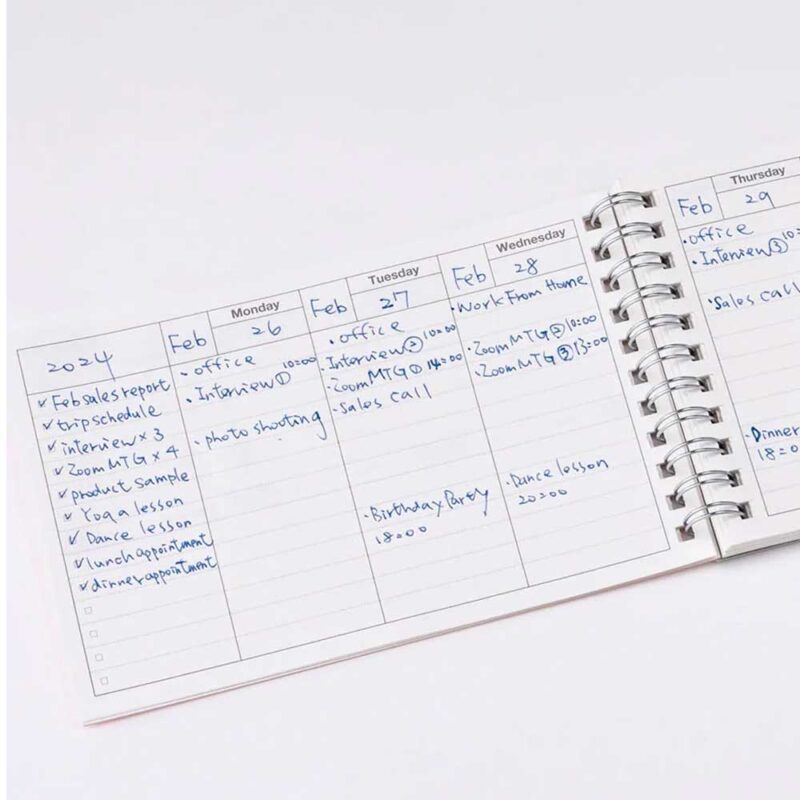 2024
✓ Feb sales report
✓ trip schedule
✓ interview × 3
✓ Zoom MTG × 4
✓ product sample
✓ Yoga lesson
✓ Dance lesson
✓ lunch appointment
✓ dinner appointment
Feb
Monday
26
・office
10:00
・Interview①
・photo shooting
Feb
Tuesday
27
・office
・Interview② 10:00
・Zoom MTG① 14:00
・Sales call
・Birthday Party
18:00
Feb
Wednesday
28
・Work From Home
・Zoom MTG② 10:00
・Zoom MTG③ 13:00
・Dance lesson
20:00
Feb
Thursday
29
・office
・Interview③ 10:
・Sales call
・Dinner
18:0